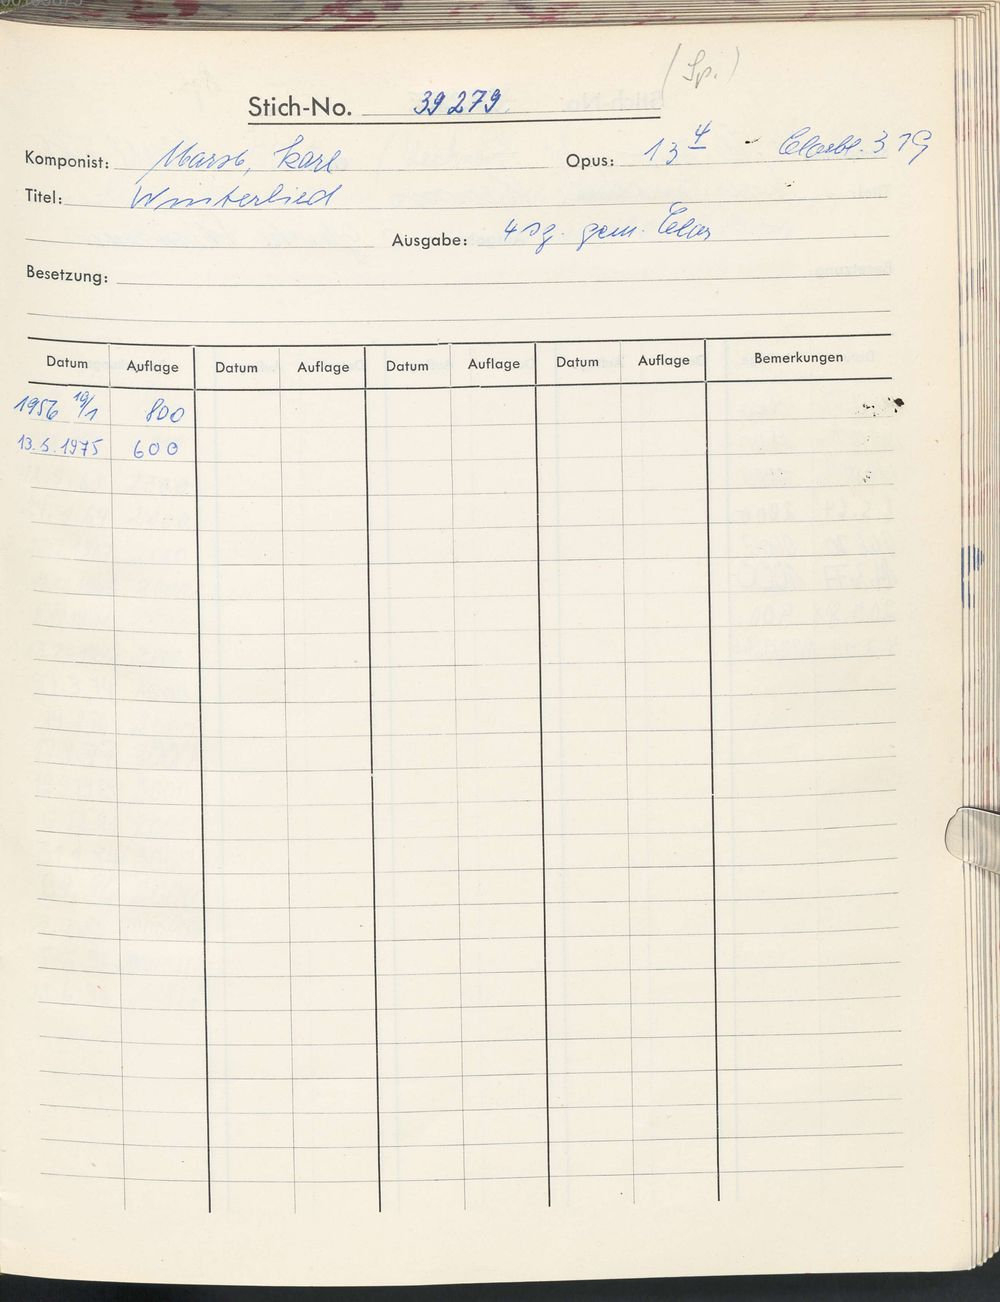 (Sp.)
Stich-No. 39279.
Komponist: Marx, Karl Opus: 13 4 - Chorbl. 319
Titel: Winterlied
Ausgabe: 4 sg. gem. Chor
Besetzung:
Datum Auflage Datum Auflage Datum Auflage Datum Auflage Bemerkungen
1956 19/1 800
13.5.1975 600